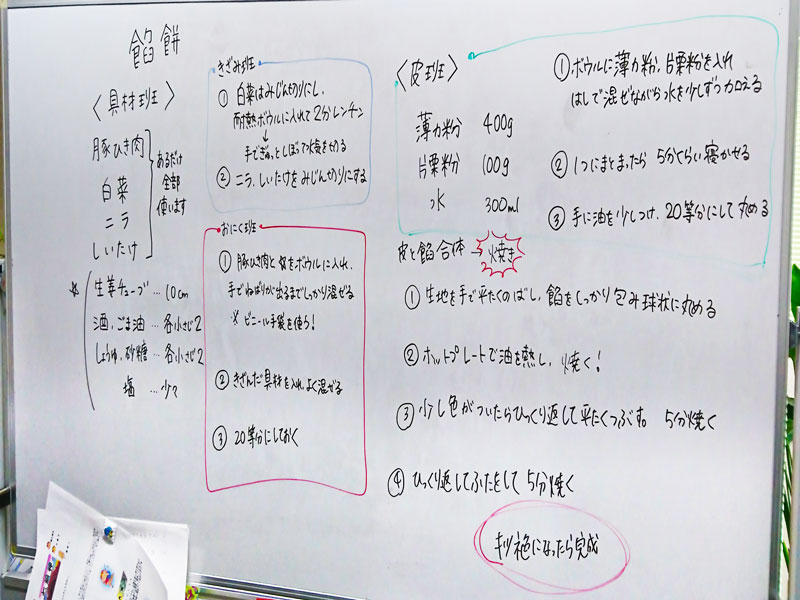 餡餅
〈具材班〉
豚ひき肉
白菜
ニラ
しいたけ
あるだけ
全部
使います
☆
生姜チューブ…10cm
酒、ごま油…各小さじ2
しょうゆ、砂糖…各小さじ2
塩…少々
きざみ班
① 白菜はみじん切りにし、
耐熱ボウルに入れて2分レンチン
↓
手でぎゅっとしぼって水気をきる
② ニラ、しいたけをみじん切りにする
おにく班
① 豚ひき肉と☆をボウルに入れ、
手でねばりが出るまでしっかり混ぜる
※ ビニール手袋を使う!
② きざんだ具材を入れよく混ぜる
③ 20等分にしておく
〈皮班〉
薄力粉 400g
片栗粉 100g
水 300ml
① ボウルに薄力粉、片栗粉を入れ
はしで混ぜながら水を少しずつ加える
② 1つにまとまったら5分くらい寝かせる
③ 手に油を少しつけ、20等分にして丸める
皮と餡合体→焼き
① 生地を手で平たくのばし、餡をしっかり包み球状に丸める
② ホットプレートで油を熱し、焼く!
③ 少し色がついたらひっくり返して平たくつぶす。 5分焼く
④ ひっくり返してふたをして5分焼く
キツネ色になったら完成